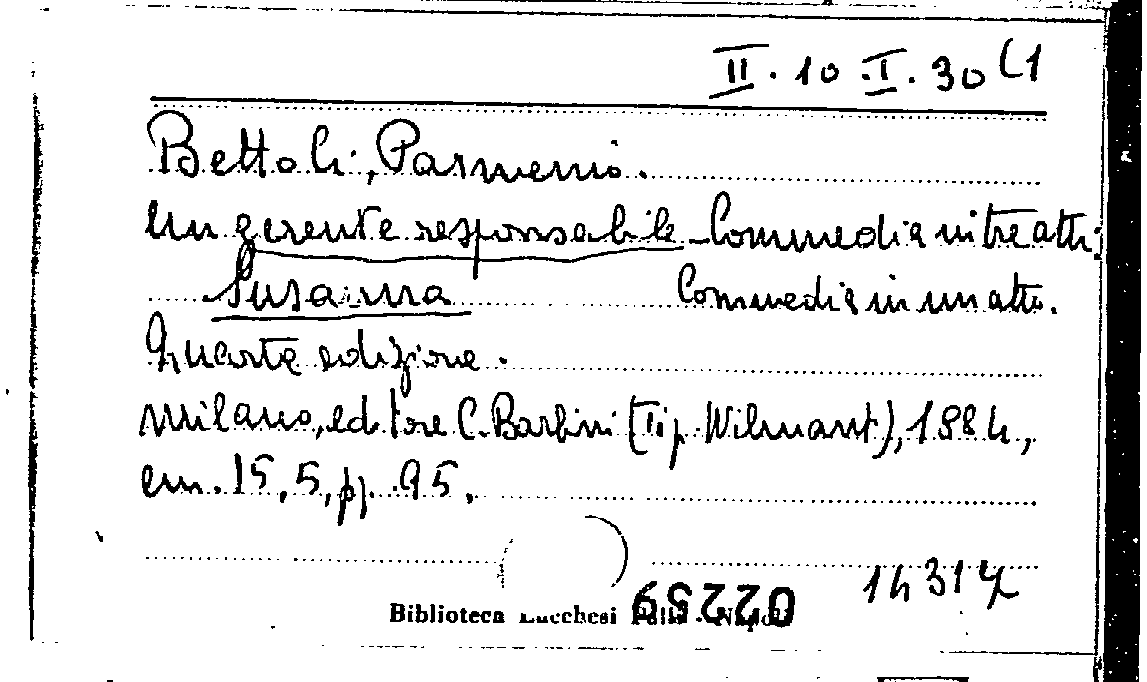 II. 10 .I. 30 (1
Bettoli, Parmenio.
Un gerente responsabile - Commedia in tre atti;
Susanna Commedia in un atto.
Quarta edizione.
Milano, editore C. Barbini (Tip. Wilmant), 1884,
cm. 15,5, pp. 95.
14317
Biblioteca Lucchesi Palli - Napoli
02259